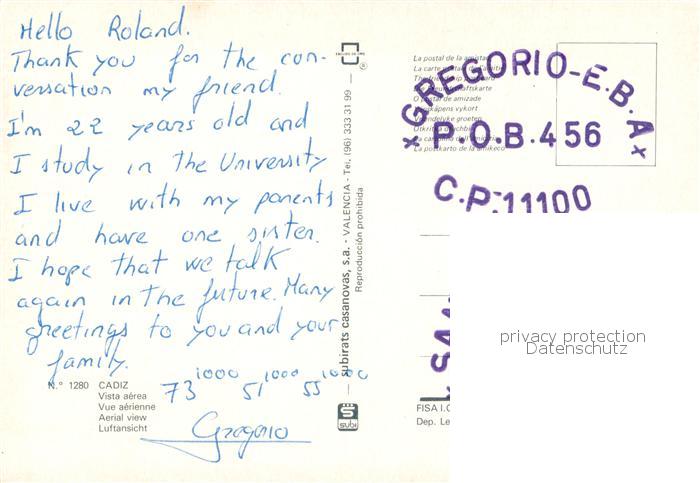 Hello Roland.
Thank you for the con-
versation my friend.
I'm 22 years old and
I study in the University
I live with my parents
and have one sister.
I hope that we talk
again in the future. Many
greetings to you and your
family.
73 1000 51 1000 55 1000
Gregorio
N.° 1280 CADIZ
Vista aérea
Vue aérienne
Aerial view
Luftansicht
subirats casanovas, s.a. - VALENCIA - Tel. (96) 333 31 99
Reproducción prohibida
®
SUBI
La postal de la
La carte
O postal de amizade
vykort
groeten
La postkarto de la amikeco
x GREGORIO-E.B.A x
P.O.B.456
C.P.11100
FISA I.G
Dep. Le
privacy protection
Datenschutz